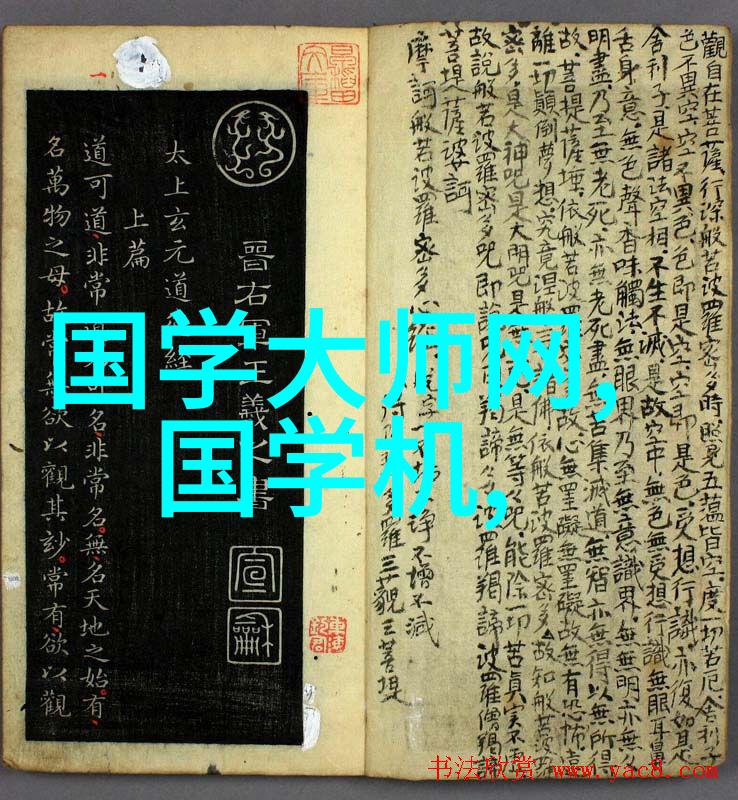 国学大师网,
国学机,
觀自在菩薩行深般若波羅密多時照見五蘊皆空度一切苦厄舍利子
色不異空空不異色色即是空空即是色受想行識亦復如是
舍利子是諸法空相不生不滅是故空中無色無受想行識無眼耳鼻
舌身意無色聲香味觸法無眼界乃至無意識界無無明亦無
明盡乃至無老死亦無老死盡無苦集滅道無智亦無得以無所得
故菩提薩埵依般若波羅故心無罣礙無罣礙故無有恐怖遠
離一切顛倒夢想究竟涅槃佛依般若波羅密多故知般若波羅
密多是大神咒是大明咒是無是無等々咒能除一切苦真實不虛
故說般若波羅密多咒即說咒曰揭諦々々波羅揭諦波羅僧揭諦
菩提薩婆訶
摩訶般若波羅密多心經
晉右軍王羲之書
宣和
太上玄元道德經
上篇
道可道非常道名非常名無名天地之始有
名萬物之母故常無欲以觀其妙常有欲以觀
书法欣赏 www.yac8.com